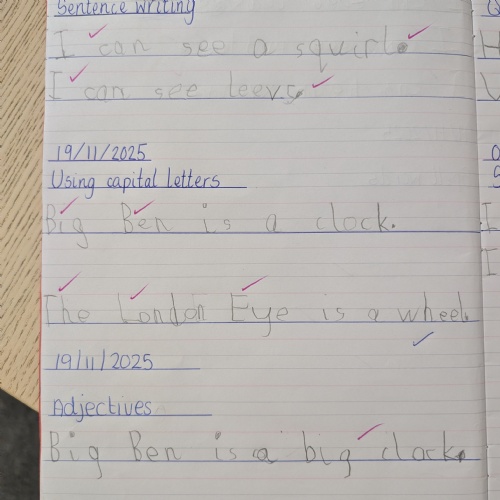 Sentence writing
I can see a squirl.
I can see leevs.
19/11/2025
Using capital letters
Big Ben is a clock.
The London Eye is a wheel.
19/11/2025
Adjectives
Big Ben is a big clock.